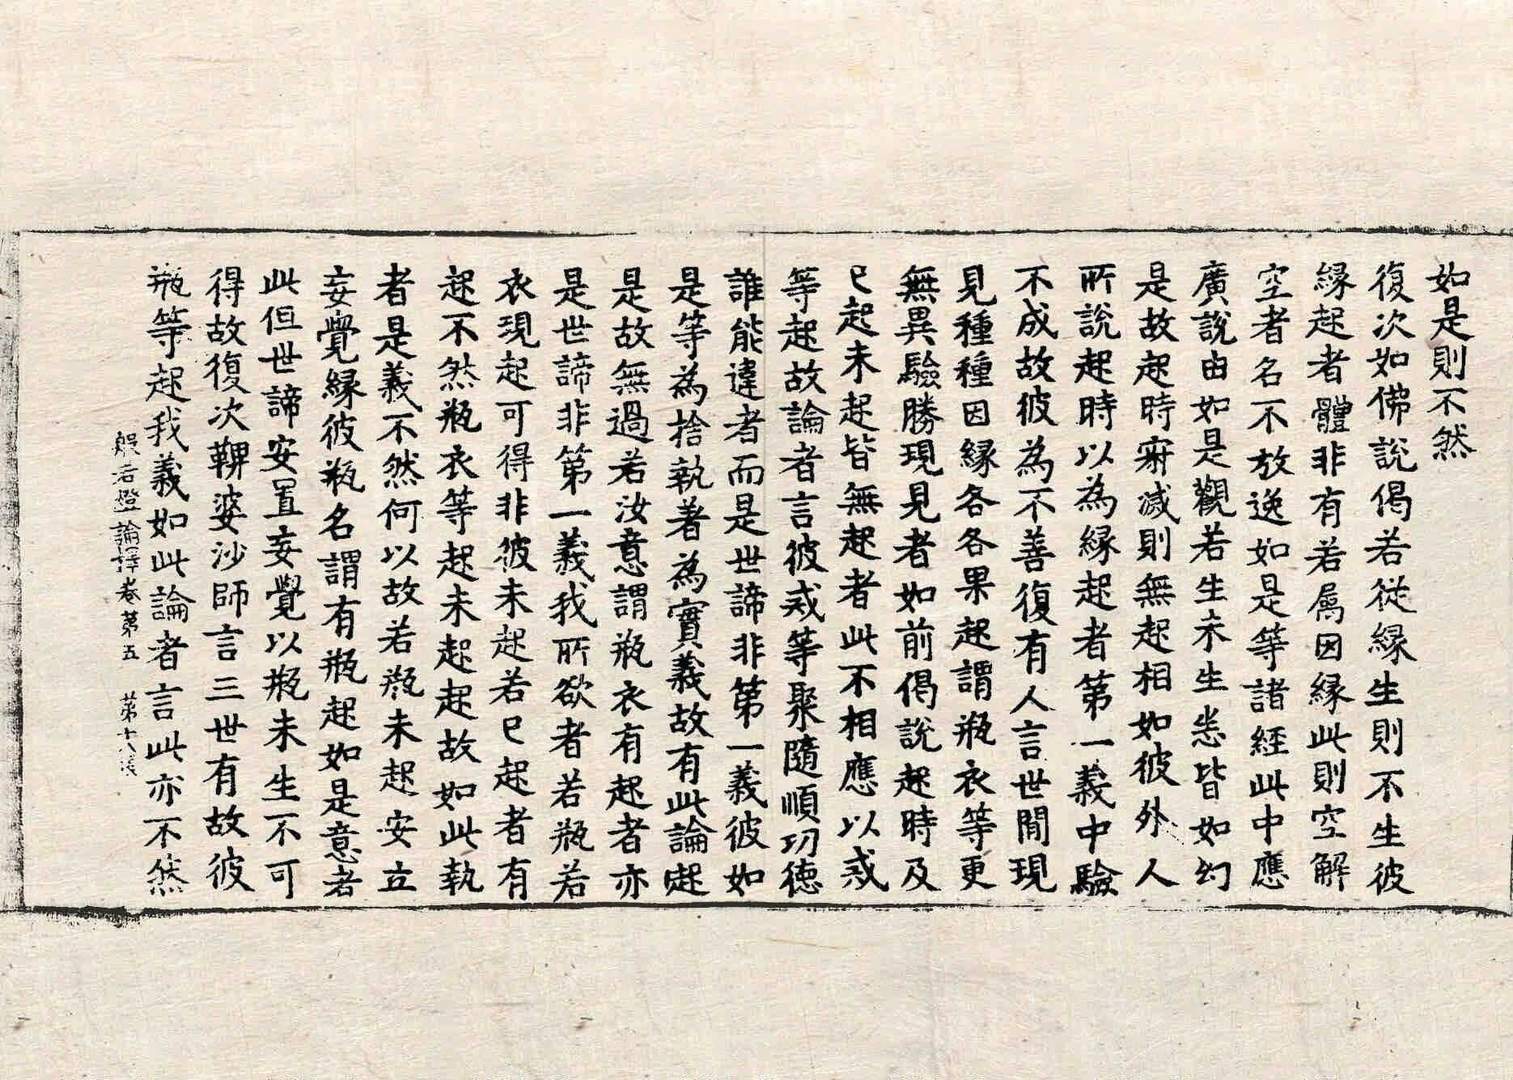 如是則不然
復次如佛說偈若從緣生則不生彼
緣起者體非有若屬因緣此則空解
空者名不放逸如是等諸經此中應
廣說由如是觀若生未生悉皆如幻
是故起時寂滅則無起相如彼外人
所說起時以為緣起者第一義中驗
不成故彼為不善復有人言世間現
見種種因緣各各果起謂瓶衣等更
無異驗勝現見者如前偈說起時及
已起未起皆無起者此不相應以或
等起故論者言彼戒等聚隨順功德
誰能違者而是世諦非第一義彼如
是等為捨執著為實義故有此論起
是故無過若汝意謂瓶衣有起者亦
是世諦非第一義我所欲者若瓶若
衣現起可得非彼未起若已起者有
起不然瓶衣等起未起起故如此執
者是義不然何以故若瓶未起安立
妄覺緣彼瓶名謂有瓶起如是意者
此但世諦安置妄覺以瓶未生不可
得故復次鞞婆沙師言三世有故彼
瓶等起我義如此論者言此亦不然
般若燈論釋卷第五 第十六張